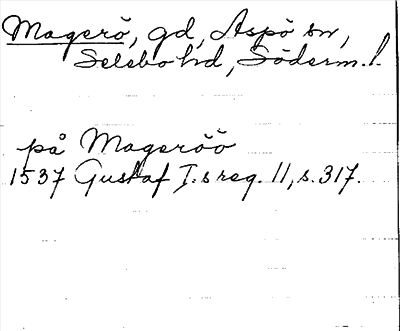 Magerö, gd, Aspö sn,
Selebo hd, Söderm. l.
på Mageröö
1537 Gustaf I:s reg. 11, s. 317.